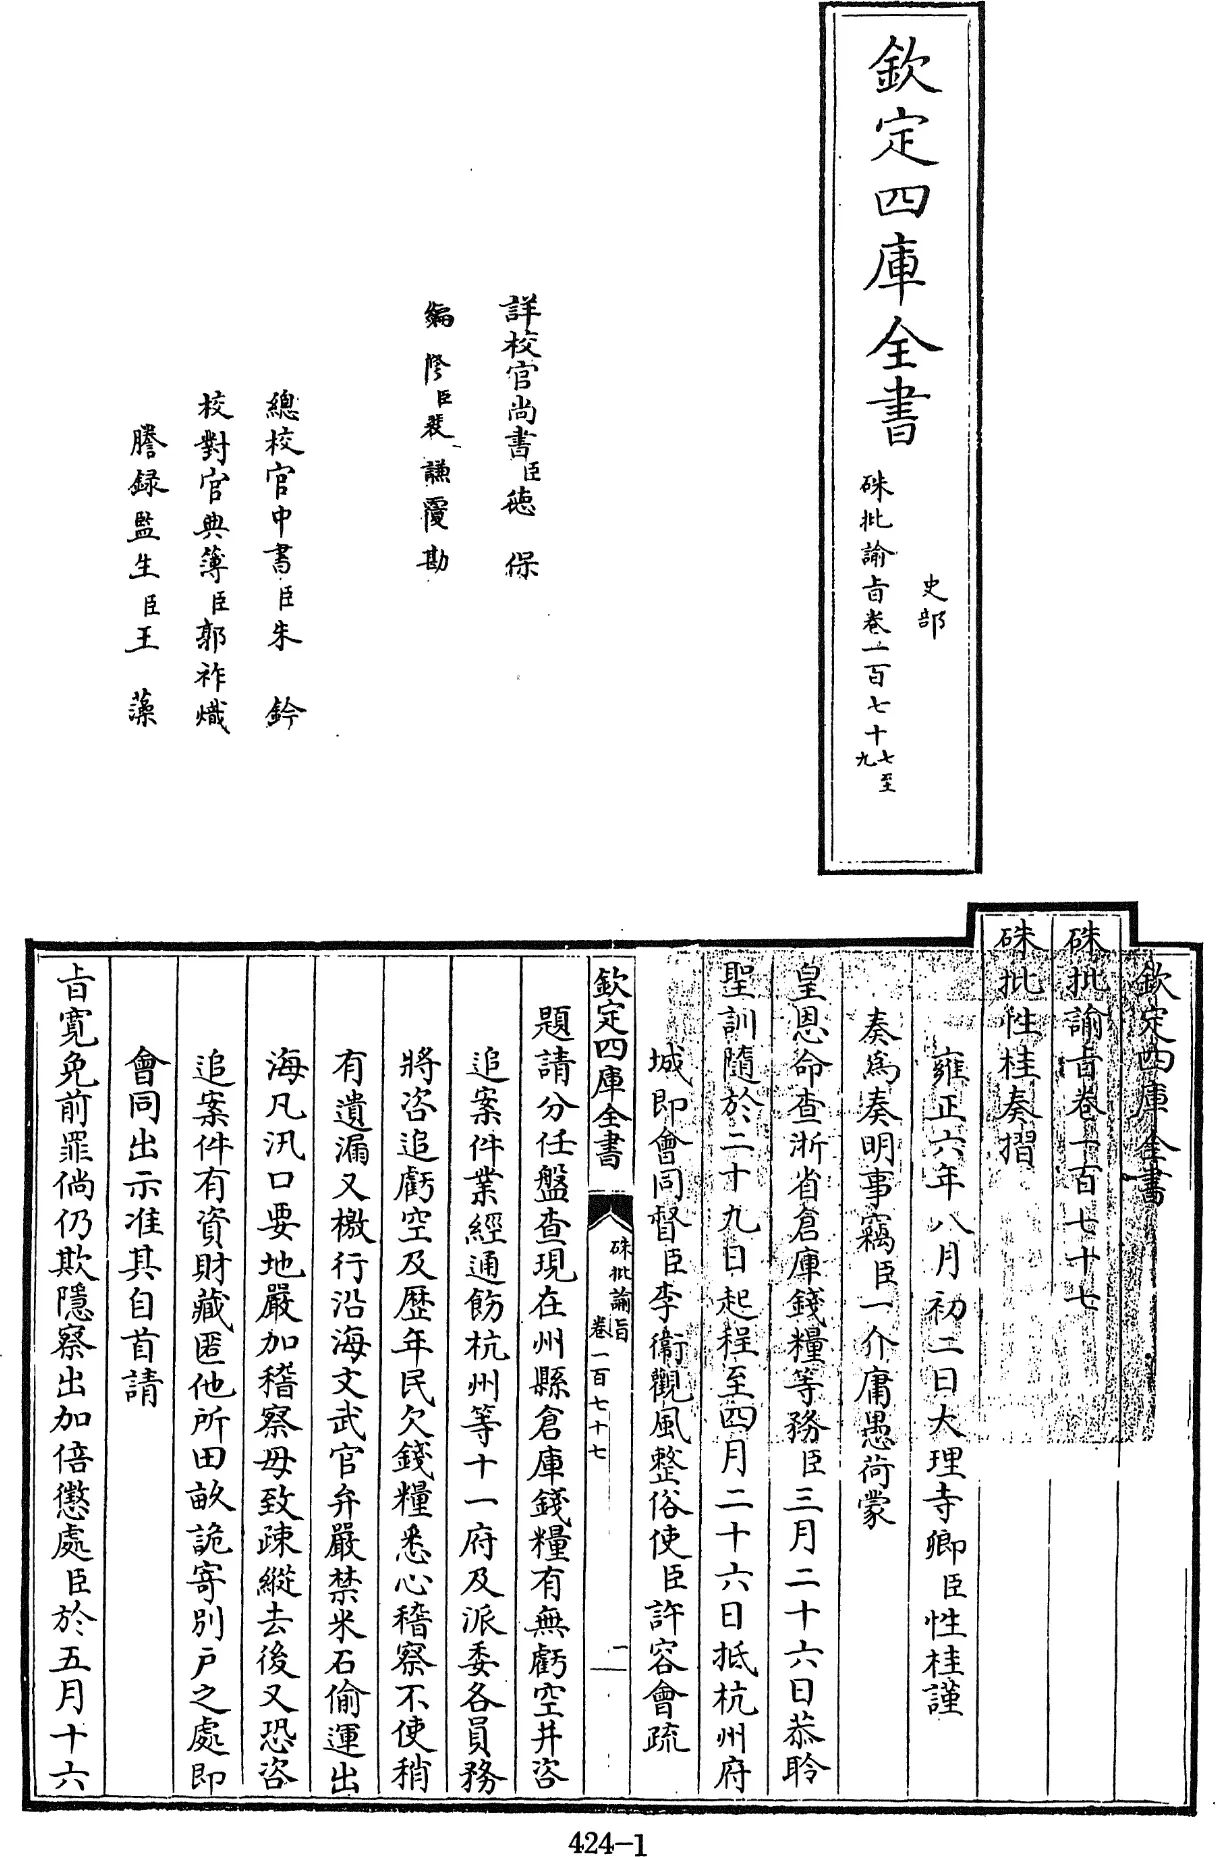 欽定四庫全書
史部
硃批諭旨卷一百七十七至
九
詳校官尚書臣德保
編修臣裴謙覆勘
總校官中書臣朱鈐
校對官典簿臣郭祚熾
謄録監生臣王藻
欽定四庫全書
硃批諭旨卷一百七十七
硃批性桂奏摺
雍正六年八月初二日大理寺卿臣性桂謹
奏為奏明事竊臣一介庸愚荷蒙
皇恩命查浙省倉庫錢糧等務臣三月二十六日恭聆
聖訓隨於二十九日起程至四月二十六日抵杭州府
城即會同督臣李衛觀風整俗使臣許容會疏
欽定四庫全書
硃批諭旨
卷一百七十七
一
題請分任盤查現在州縣倉庫錢糧有無虧空并咨
追案件業經通飭杭州等十一府及派委各員務
將咨追虧空及歷年民欠錢糧悉心稽察不使稍
有遺漏又檄行沿海文武官弁嚴禁米石偷運出
海凡汛口要地嚴加稽察毋致疎縱去後又恐咨
追案件有資財藏匿他所田畝詭寄別戶之處即
會同出示准其自首請
旨寬免前罪倘仍欺隱察出加倍懲處臣於五月十六
424-1